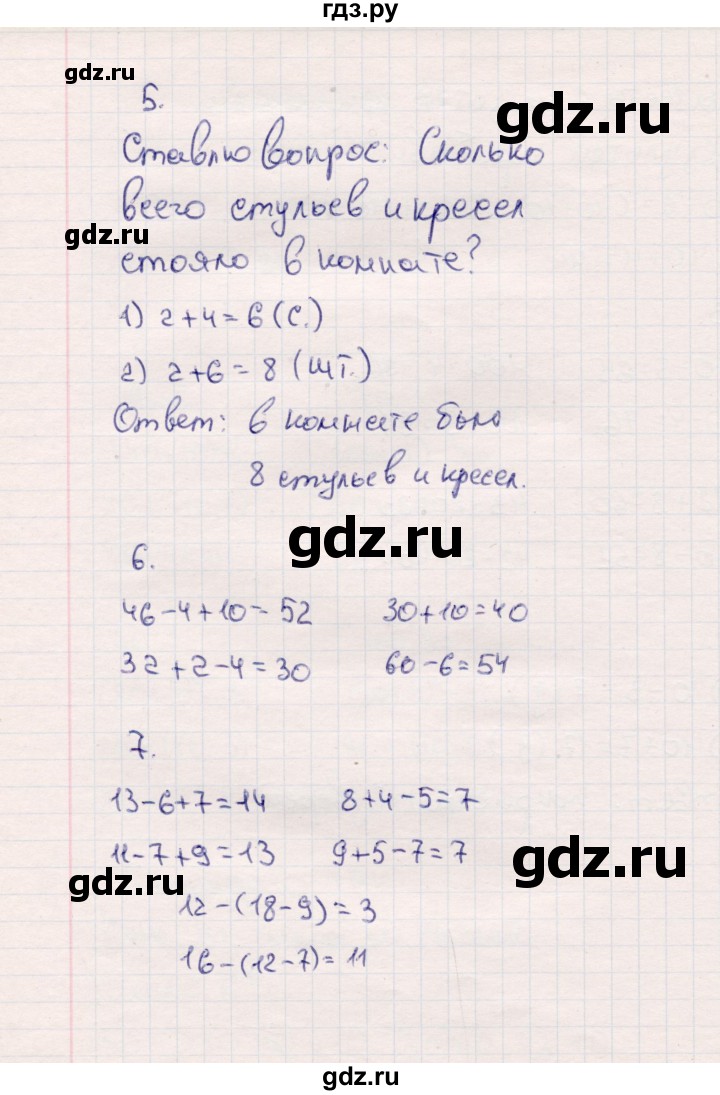 гдз.ру
gdz.ru
5.
gdz.ru
Ставлю вопрос: Сколько
всего стульев и кресел
gdz.ru
стояло в комнате?
1) 2+4=6 (с.)
2) 2+6=8 (шт.)
Ответ: в комнате было
8 стульев и кресел.
gdz.ru
6.
46-4+10=52 30+10=40
32+2-4=30 60-6=54
7.
13-6+7=14 8+4-5=7
11-7+9=13 9+5-7=7
gdz.ru
gdz.ru
12-(18-9)=3
16-(12-7)=11
gdz.ru